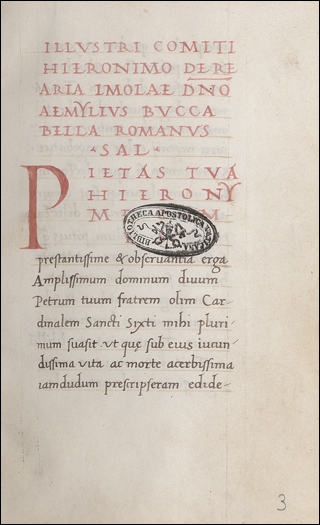 ILLVSTRI COMITI
HIERONIMO DE RE
ARIA IMOLAE DNO
AEMYLIVS BVCCA
BELLA ROMANVS
SAL
PIETAS TVA
HIERONY
M
BIBLIOTHECA APOSTOLICA VATICANA
prestantissime & observantia erga
Amplissimum dominum diuum
Petrum tuum fratrem olim Car
dinalem Sancti Sixti mihi pluri
mum suasit vt quę sub eius iucun
dissima vita ac morte acerbissima
iamdudum prescripseram edide-
3